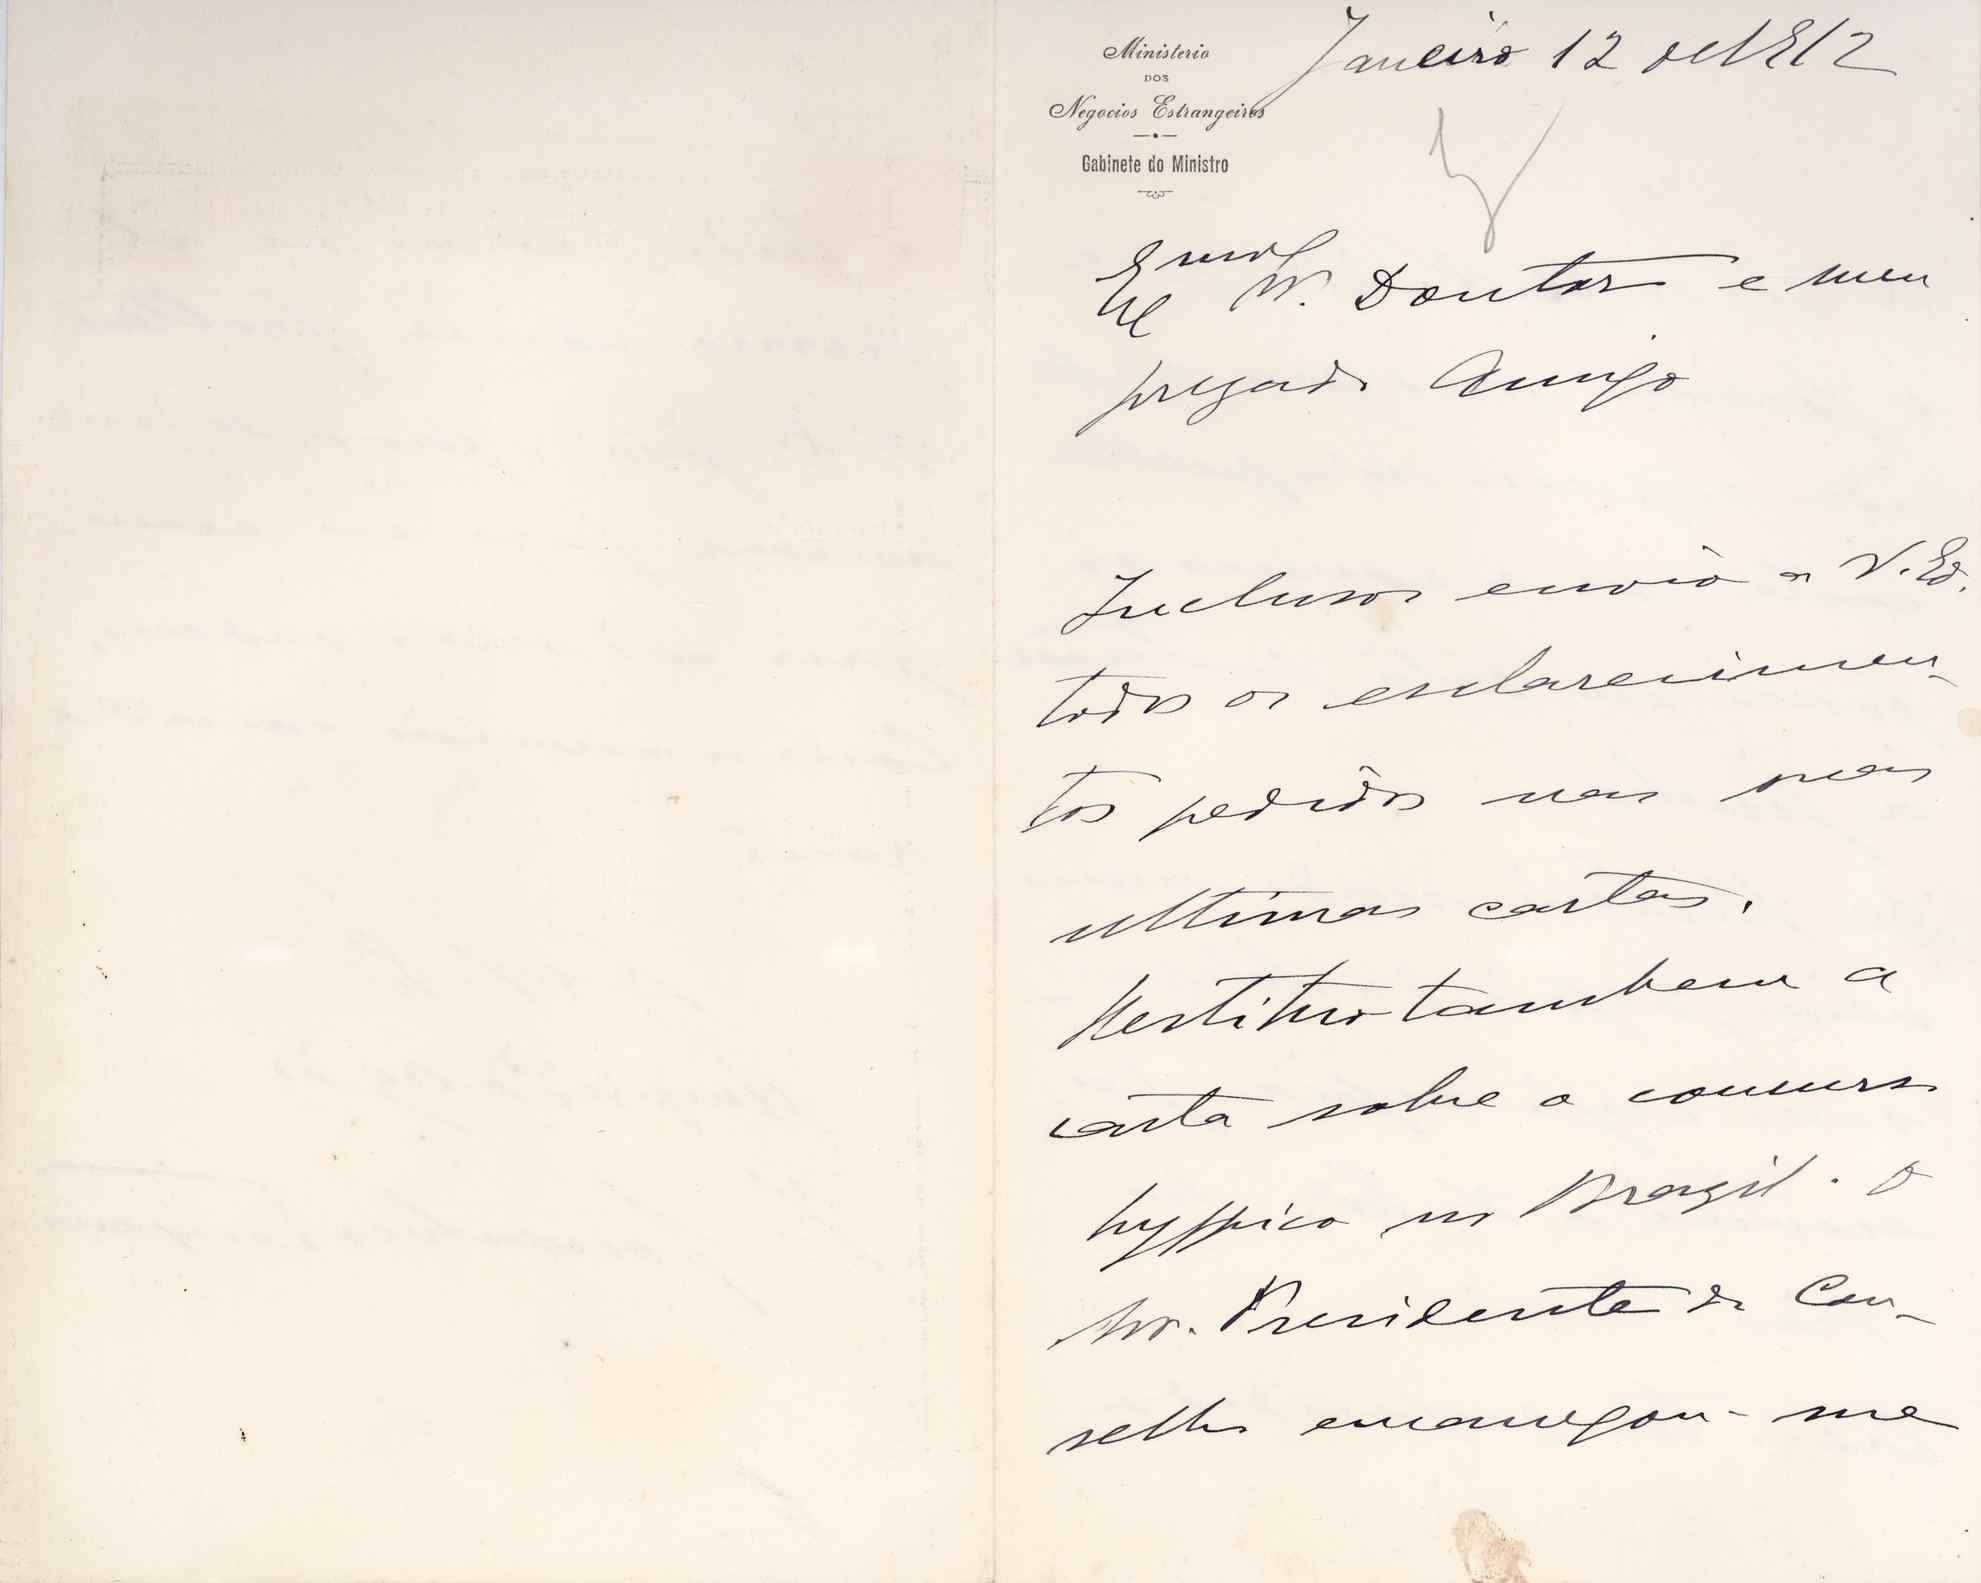 Ministerio
DOS
Negocios Estrangeiros
Gabinete do Ministro
Janeiro 12 de 1912
Exmo
Sr. Doutor e meu
prezado Amigo
Inclusos envio a V. Ex.
todos os esclarecimen-
tos pedidos nas suas
ultimas cartas.
Restituo tambem a
carta sobre o concurso
hyppico no Brazil. O
Snr. Presidente do Con-
selho encarregou-me